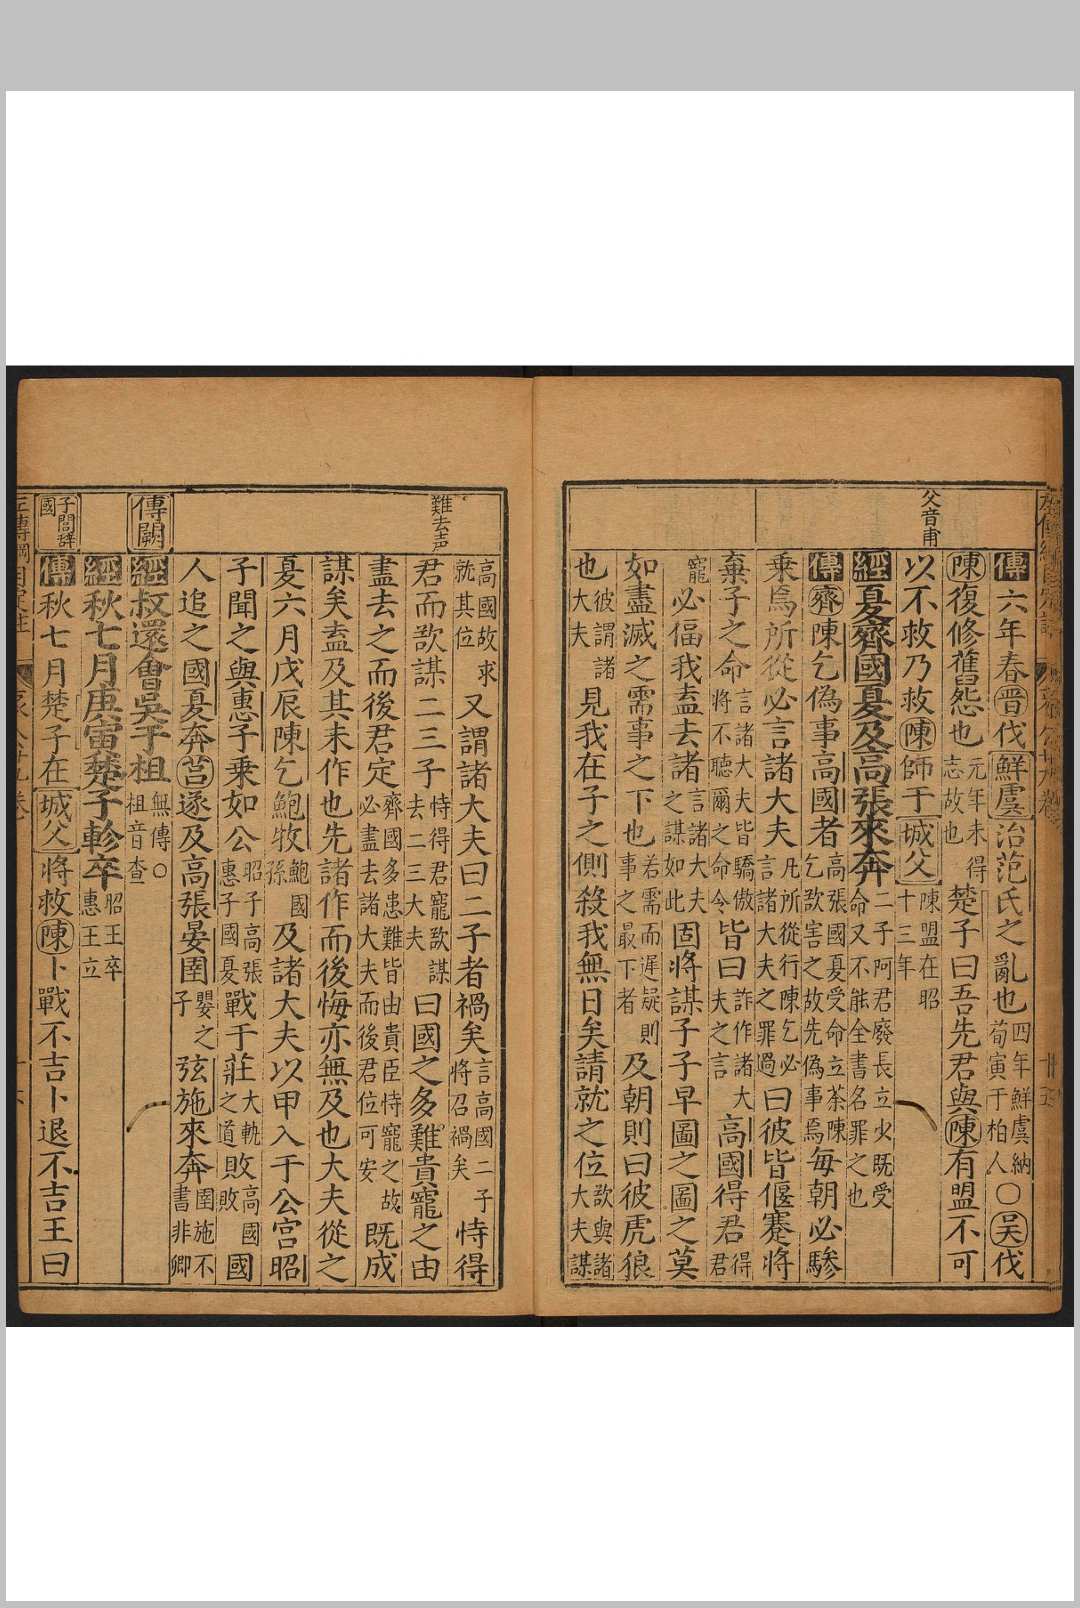 父音甫
傳六年春晉伐鮮虞治范氏之亂也四年鮮虞納荀寅于柏人〇吳伐
陳復修舊怨也元年未得志故也楚子曰吾先君與陳有盟不可
以不救乃救陳師于城父陳盟在昭十三年
經夏齊國夏及高張來奔二子阿君廢長立少既受命又不能全書名罪之也
傳齊陳乞偽事高國者高張國夏受命立荼陳乞欲害之故先偽事焉每朝必驂
乗焉所從必言諸大夫凡所從行陳乞必言諸大夫之罪過曰彼皆偃蹇將
棄子之命言諸大夫皆驕傲將不聽爾之命令皆曰詐作諸大夫之言高國得君得君
寵必偪我盍去諸言諸大夫之謀如此固將謀子子早圖之圖之莫
如盡滅之需事之下也若需而遲疑則事之最下者及朝則曰彼虎狼
也彼謂諸大夫見我在子之側殺我無日矣請就之位欲與諸大夫謀
難去声
高國故求就其位又謂諸大夫曰二子者禍矣言高國二子將召禍矣恃得
君而欲謀二三子恃得君寵欲謀去二三大夫曰國之多難貴寵之由
盡去之而後君定齊國多患難皆由貴臣恃寵之故必盡去諸大夫而後君位可安既成
謀矣盍及其未作也先諸作而後悔亦無及也大夫從之
夏六月戊辰陳乞鮑牧鮑國孫及諸大夫以甲入于公宮昭
子聞之與惠子乗如公昭子高張惠子國夏戰于莊大軌之道敗高國敗國
人追之國夏奔莒遂及高張晏圉嬰之子弦施來奔圉施不書非卿
傳闕
經叔還會吳于柤無傳〇柤音查
經秋七月庚寅楚子軫卒昭王卒惠王立
子閭辞國
傳秋七月楚子在城父將救陳卜戰不吉卜退不吉王曰